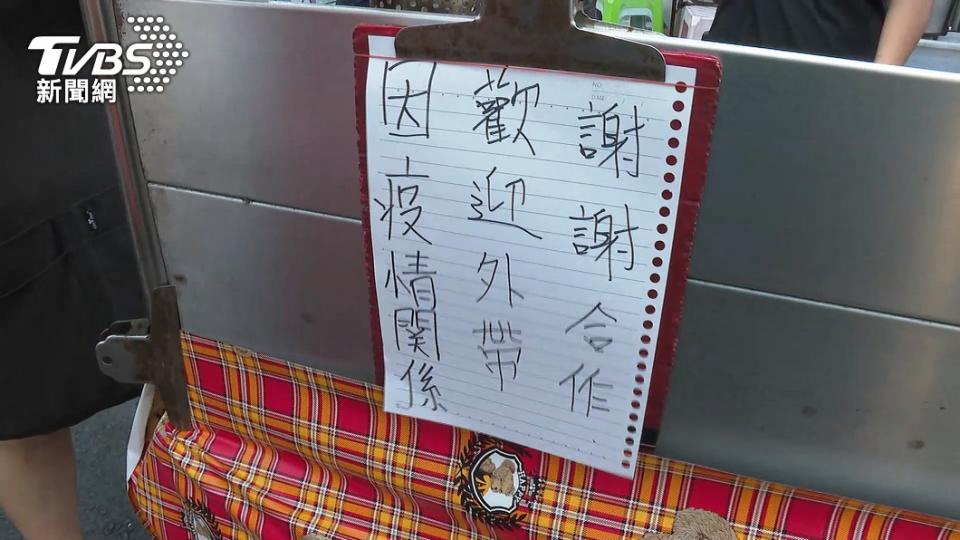 TVBS
新聞網
因疫情関係
歡迎外帶
謝謝合作